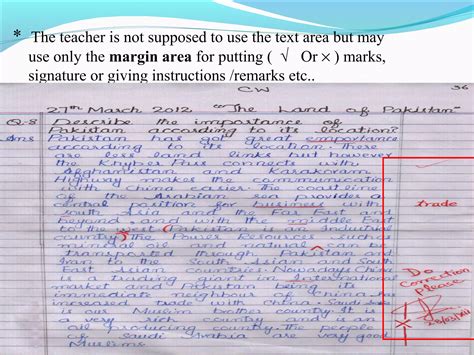 * The teacher is not supposed to use the text area but may
use only the margin area for putting ( √ Or × ) marks,
signature or giving instructions /remarks etc..
CW
36
27th March 2012 "The Land of Pakistan"
Q.8 Describe the importance of
Pakistan according to its location?
Ans Pakistan has got great emportance
according to its location. There
are less land links but however
the Khyber Pass connects with
Afghanistan and Karakoram
Highway makes the communication
with China easier. The coastline
of the Arabian sea provides a
central position for business with
trade
South Asia and the Far East and
beyond and with the middle East
to the west. Pakistan is an Industrial
country. The Power Resources such
mineral oil and natural can be
transported through Pakistan and
Iran to the South Asian and South
East Asian countries. Nowadays China
is a trading giant in International
market and Pakistan being its
immediate neighbour of China has
increased trade with China. Saudi
is our Muslim brother country. It
is a very rich country and an
oil producing country. The people
of Saudi Arabia are very good
Muslims.
Do
Correction
Please